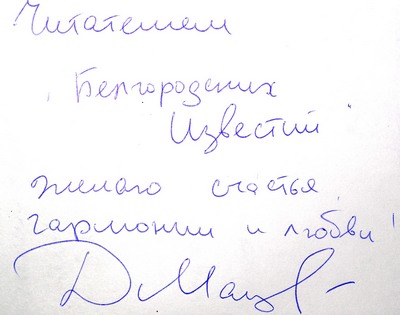 Читателям
"Белгородских
Известий"
желаю счастья,
гармонии и любви!